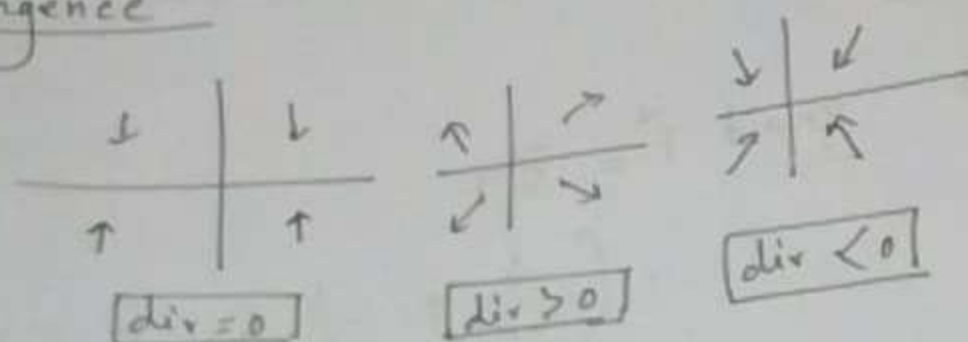 ngence
div = 0
div > 0
div < 0